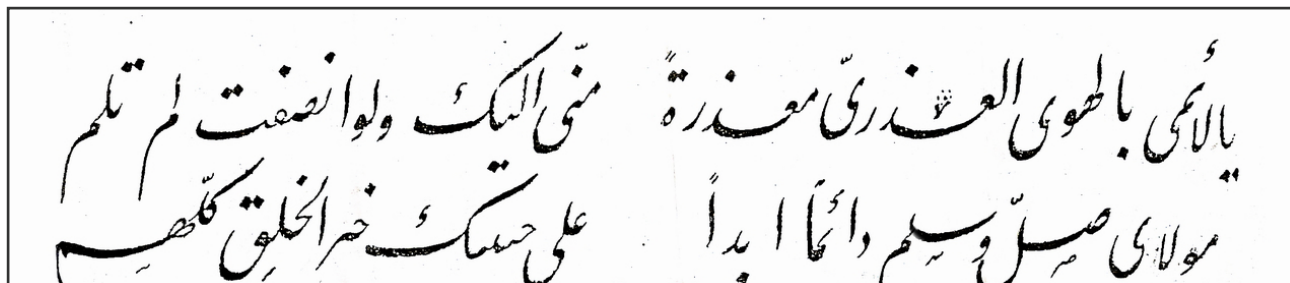 يا لائمى بالهوى العذرىّ معذرةً منّى اليك ولو انصفت لم تلم
مولاى صلّ وسلم دائمًا ابداً على حبيبك خير الخلق كلّهم